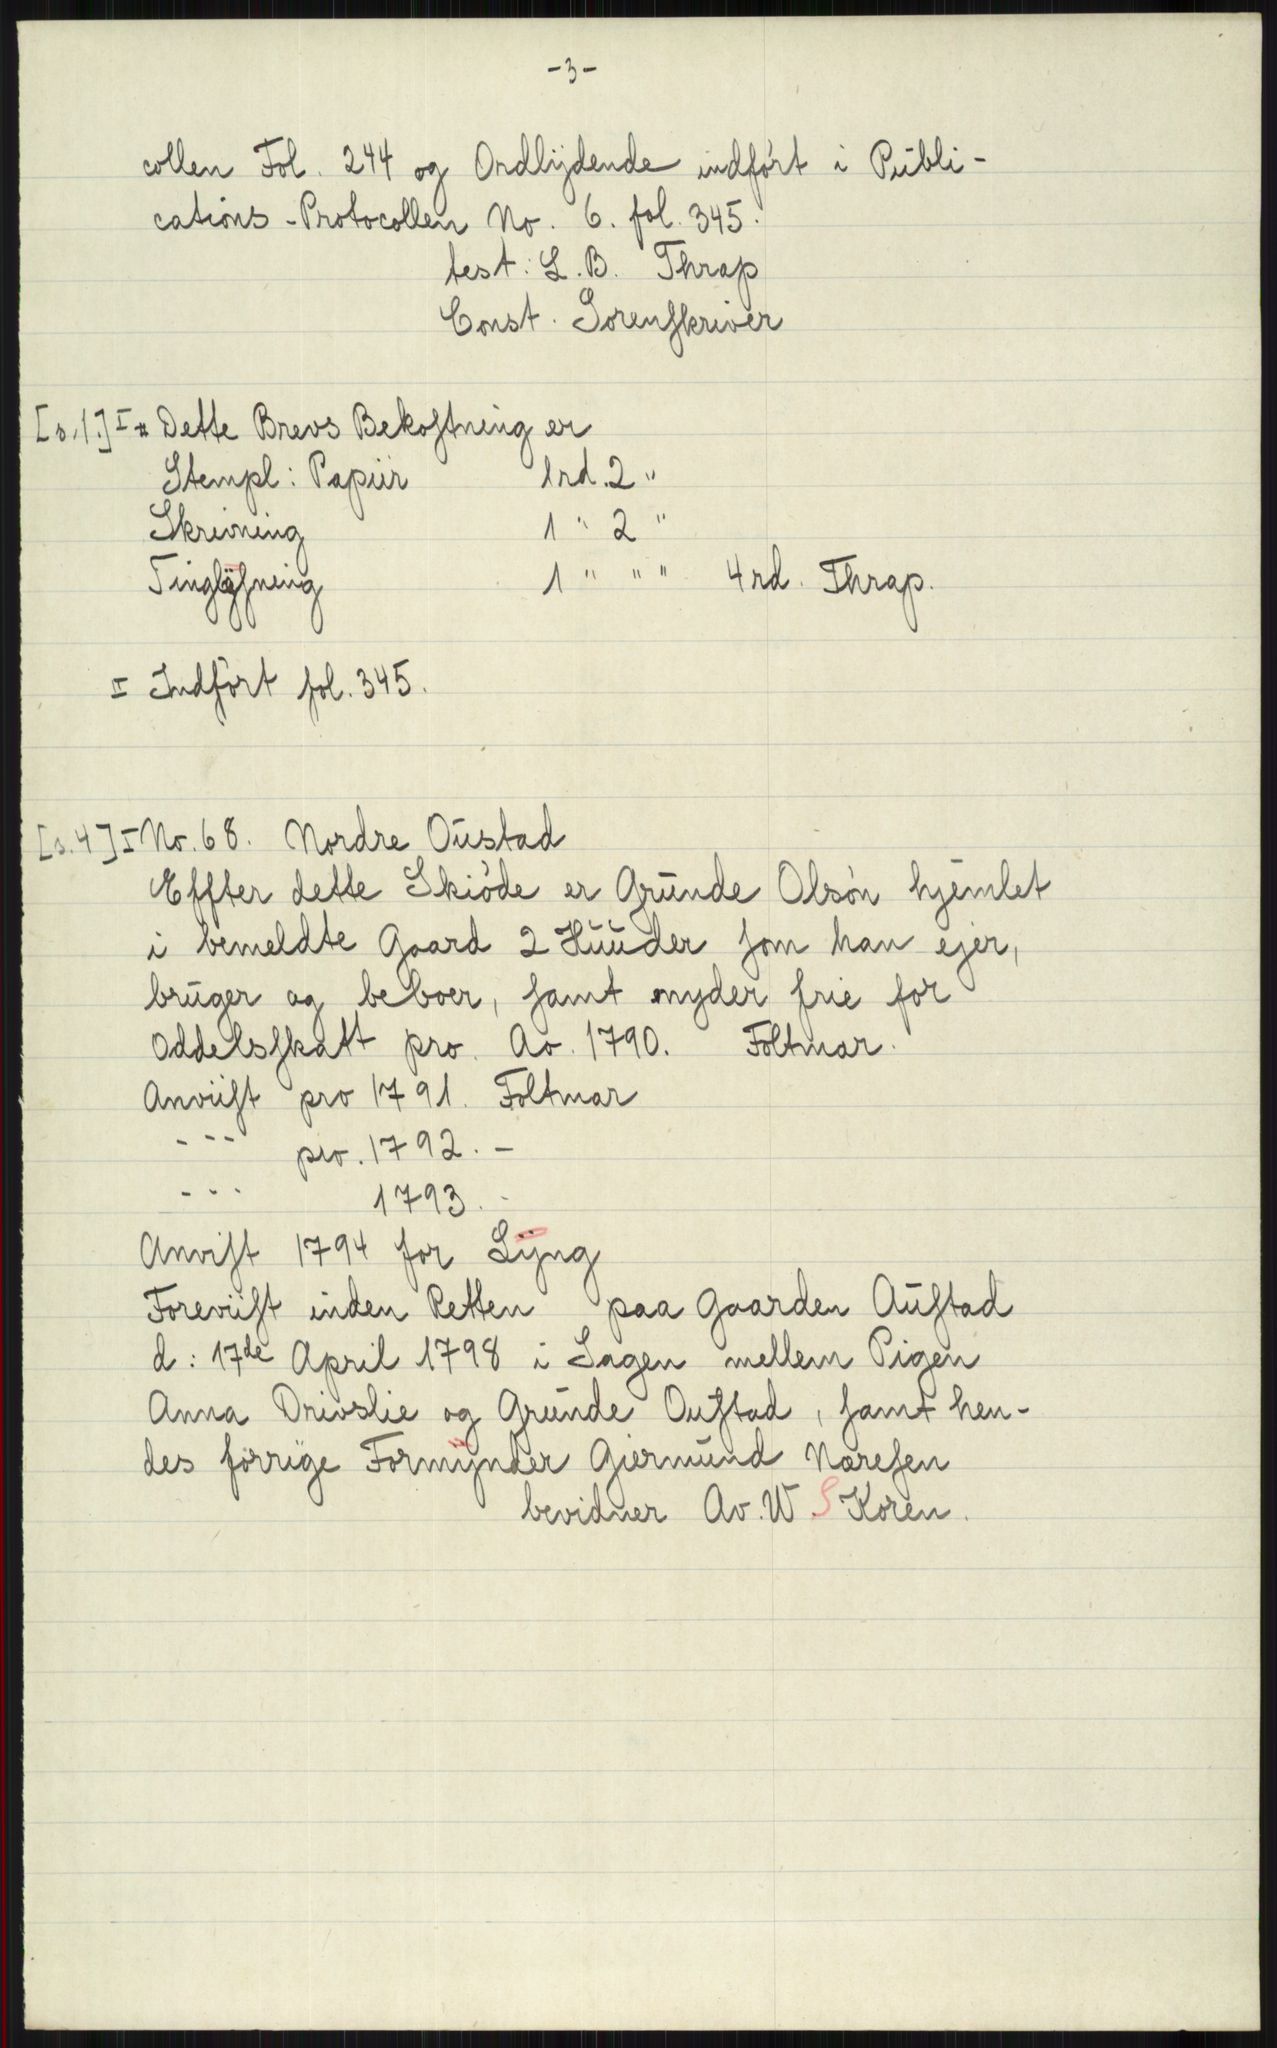 -3-
collen Fol. 244 og Ordlÿdende indført i Publi-
cations-Protocollen No. 6. fol. 345.
test: L. B. Thrap
Const. Sorenskriver
[s.1.] I # Dette Brevs Bekostning er
Stempl: Papiir 1 rd. 2 "
Skrivning 1 " 2 "
Tinglÿsning 1 " " " 4 rd. Thrap.
I Indført fol. 345.
[s.4] I No. 68. Nordre Oustad
Effter dette Skiøde er Grunde Olsøn hjemlet
i bemeldte Gaard 2 Huuder som han ejer,
bruger og beboer, samt nyder frie for
Oddelsskatt pro. Ao. 1790. Foltmar.
Anviist pro 1791. Foltmar
- - - pro. 1792. -
- - - 1793. -
Anvist 1794 for Lÿng
Foreviist inden Retten paa Gaarden Austad
d: 17de April 1798 i Sagen mellem Pigen
Anna Drivslie og Grunde Oustad, samt hen-
des forrige Formÿnder Giermund Næresen
bevidner Av. W S Koren.